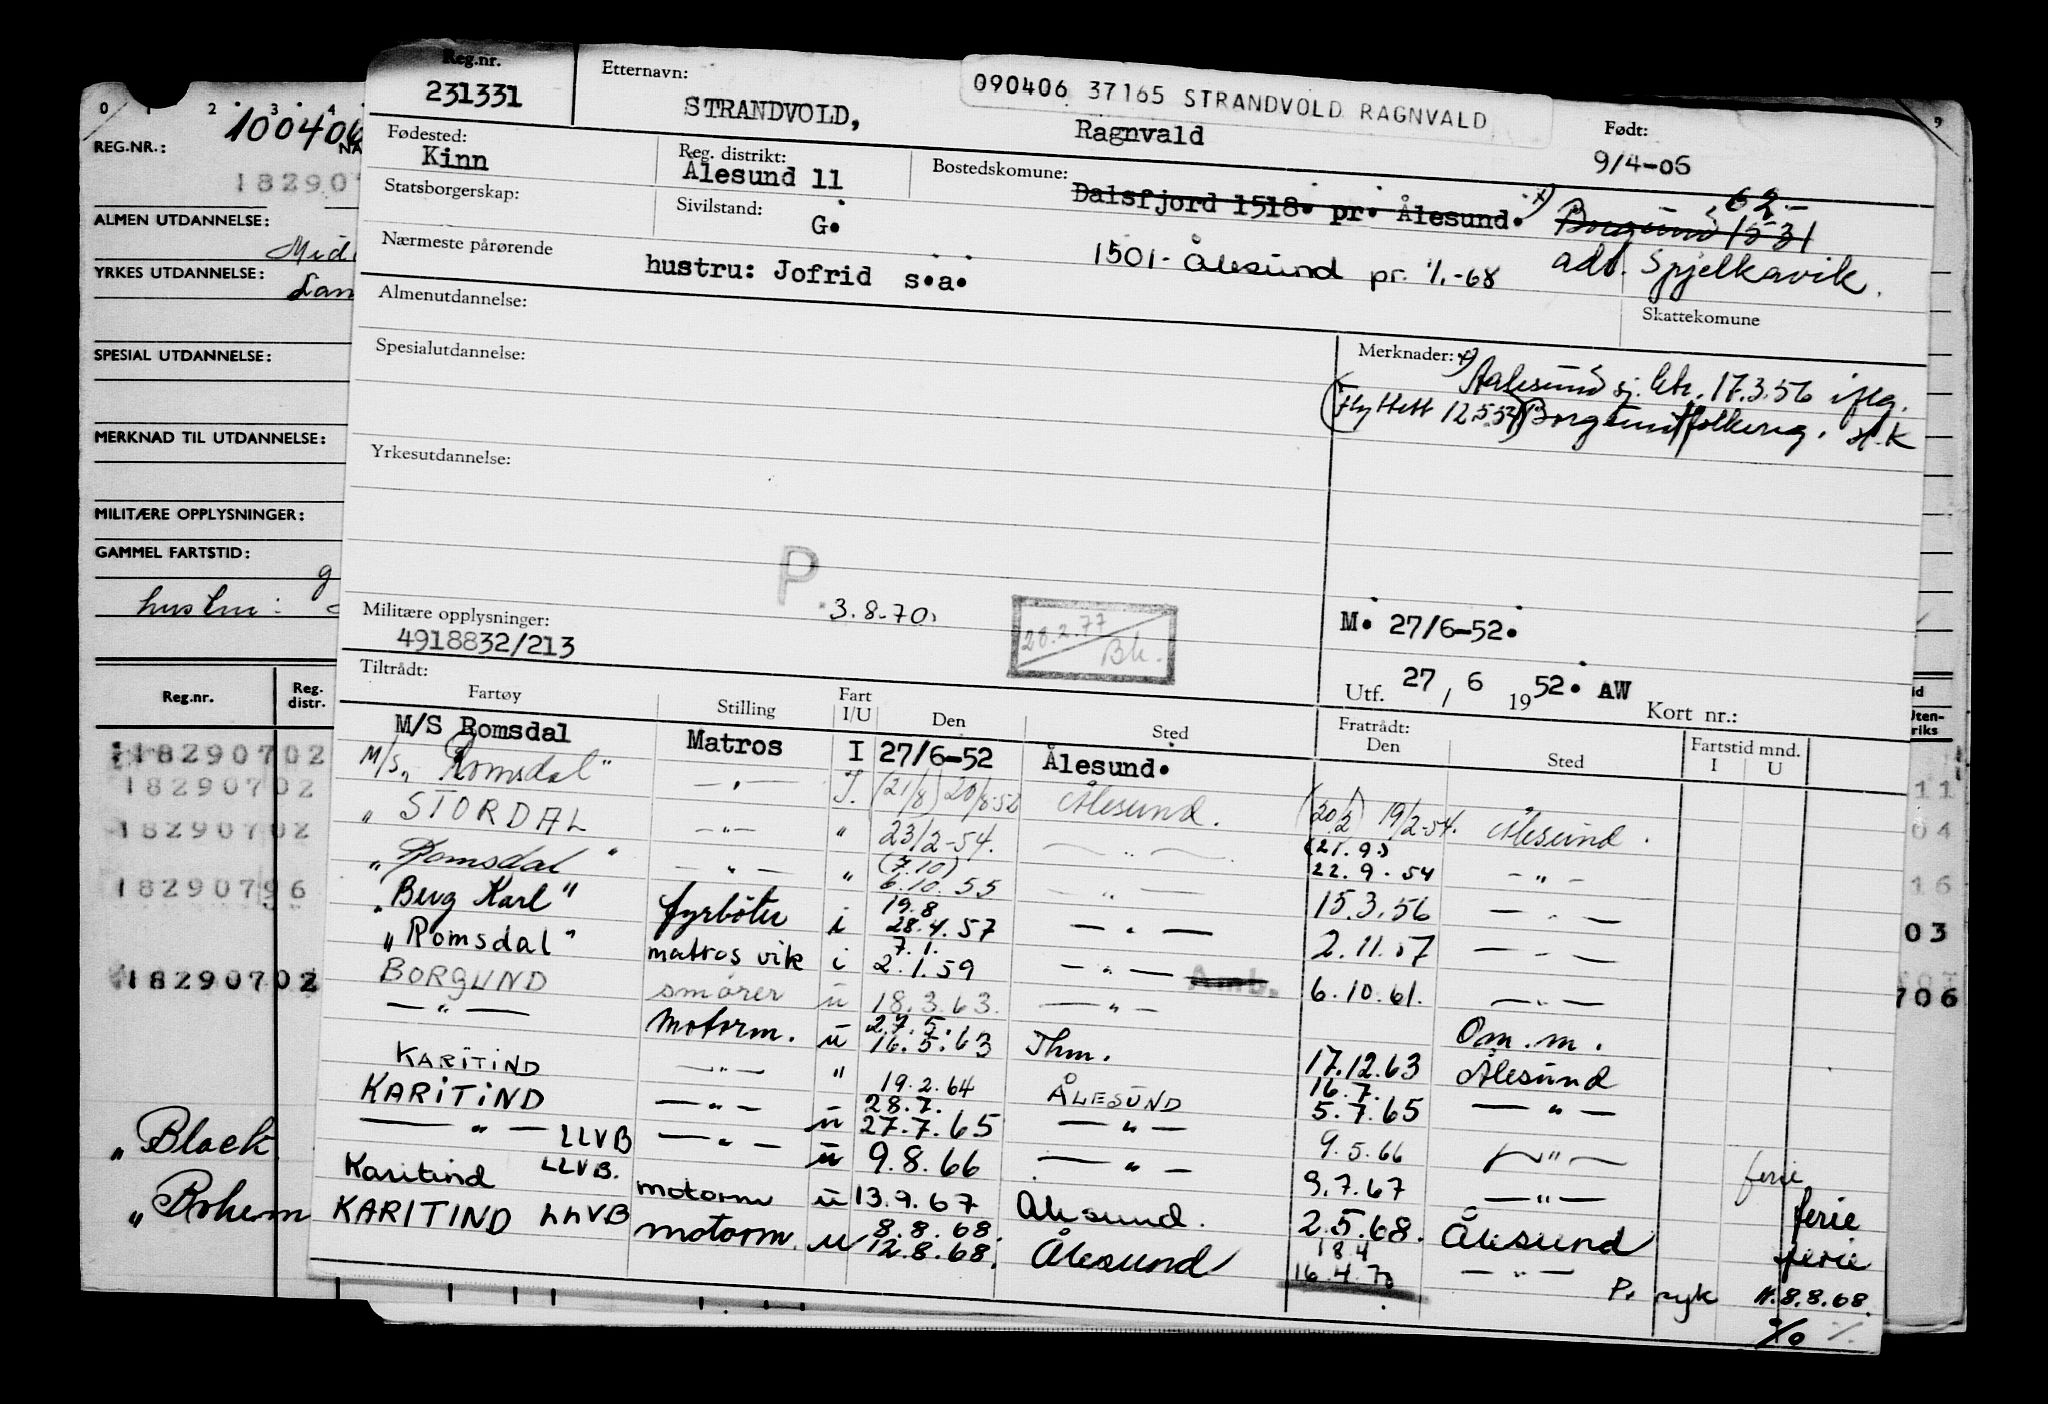 Reg.nr.
231331
Etternavn:
STRANDVOLD,
Ragnvald
090406 37165 STRANDVOLD RAGNVALD
Født:
9/4-06
Fødested:
Kinn
Reg. distrikt:
Ålesund 11
Bostedskomune:
Dalsfjord 1518. pr. Ålesund. x)
Borgund 1531
62.-
Statsborgerskap:
Sivilstand:
G.
1501- Ålesund pr. 1/1-68
adr. Spjelkavik.
Nærmeste pårørende
hustru: Jofrid s.a.
Skattekomune
Almenutdannelse:
Spesialutdannelse:
Merknader: x)
Aalesund sj. 17.3.56 iflg.
(Flyttett 12.5.53) Borgund folkereg. H.K
Yrkesutdannelse:
P. 3.8.70.
28.2.77
Bh.
M. 27/6-52.
Militære opplysninger:
4918832/213
Utf. 27 / 6 1952. AW
Kort nr.:
Tiltrådt:
Fartøy Stilling Fart I/U Den Sted Fratrådt: Den Sted Fartstid mnd. I U
M/S Romsdal Matros I 27/6-52 Ålesund.
M/S "Romsdal" —"— I. (21/8) 20/8-52 Ålesund. (20/2) 19/2-54. Ålesund.
" STORDAL —"— " 23/2-54. —"— (21.9.) 22.9.54 —"—
" Romsdal " —"— " (7.10) 6.10.55 —"— 15.3.56 —"—
" Berg Karl" fyrbøter i 19.8 28.4.57 —"— 2.11.57 —"—
" Romsdal" matros vik i 7.1. 2.1.59 —"— Amb. 6.10.61. —"—
BORGUND smører u 18.3.63. —"— Om.m.
—"— Motorm. u 27.5. 16.5.63 Thm. 17.12.63 Ålesund
KARITIND —"— " 19.2.64 ÅLESUND 16.7. 5.7.65 —"—
KARITIND —"— u 28.7. 27.7.65 —"— 9.5.66 —"— ferie
—"— LLVB —"— u 9.8.66 —"— 9.7.67 —"— ferie
Karitind LLVB. motorm u 13.9.67 Ålesund. 2.5.68. Ålesund ferie
KARITIND LLVB motorm. u 8.8.68. 12.8.68. Ålesund 18.4 16.4.70 —"—
P. syk 11.8.8.68.
0 1 2 3 4
9
REG.NR.:
100406
NA
182907
ALMEN UTDANNELSE:
Mid
YRKES UTDANNELSE:
Lan
SPESIAL UTDANNELSE:
MERKNAD TIL UTDANNELSE:
MILITÆRE OPPLYSNINGER:
GAMMEL FARTSTID:
g
hustru:
Reg.nr. Reg. distr.
id
Uten-
riks
18290702
11
18290702
04
18290702
18290796
16
03
18290702
706
" Black
" Bohem